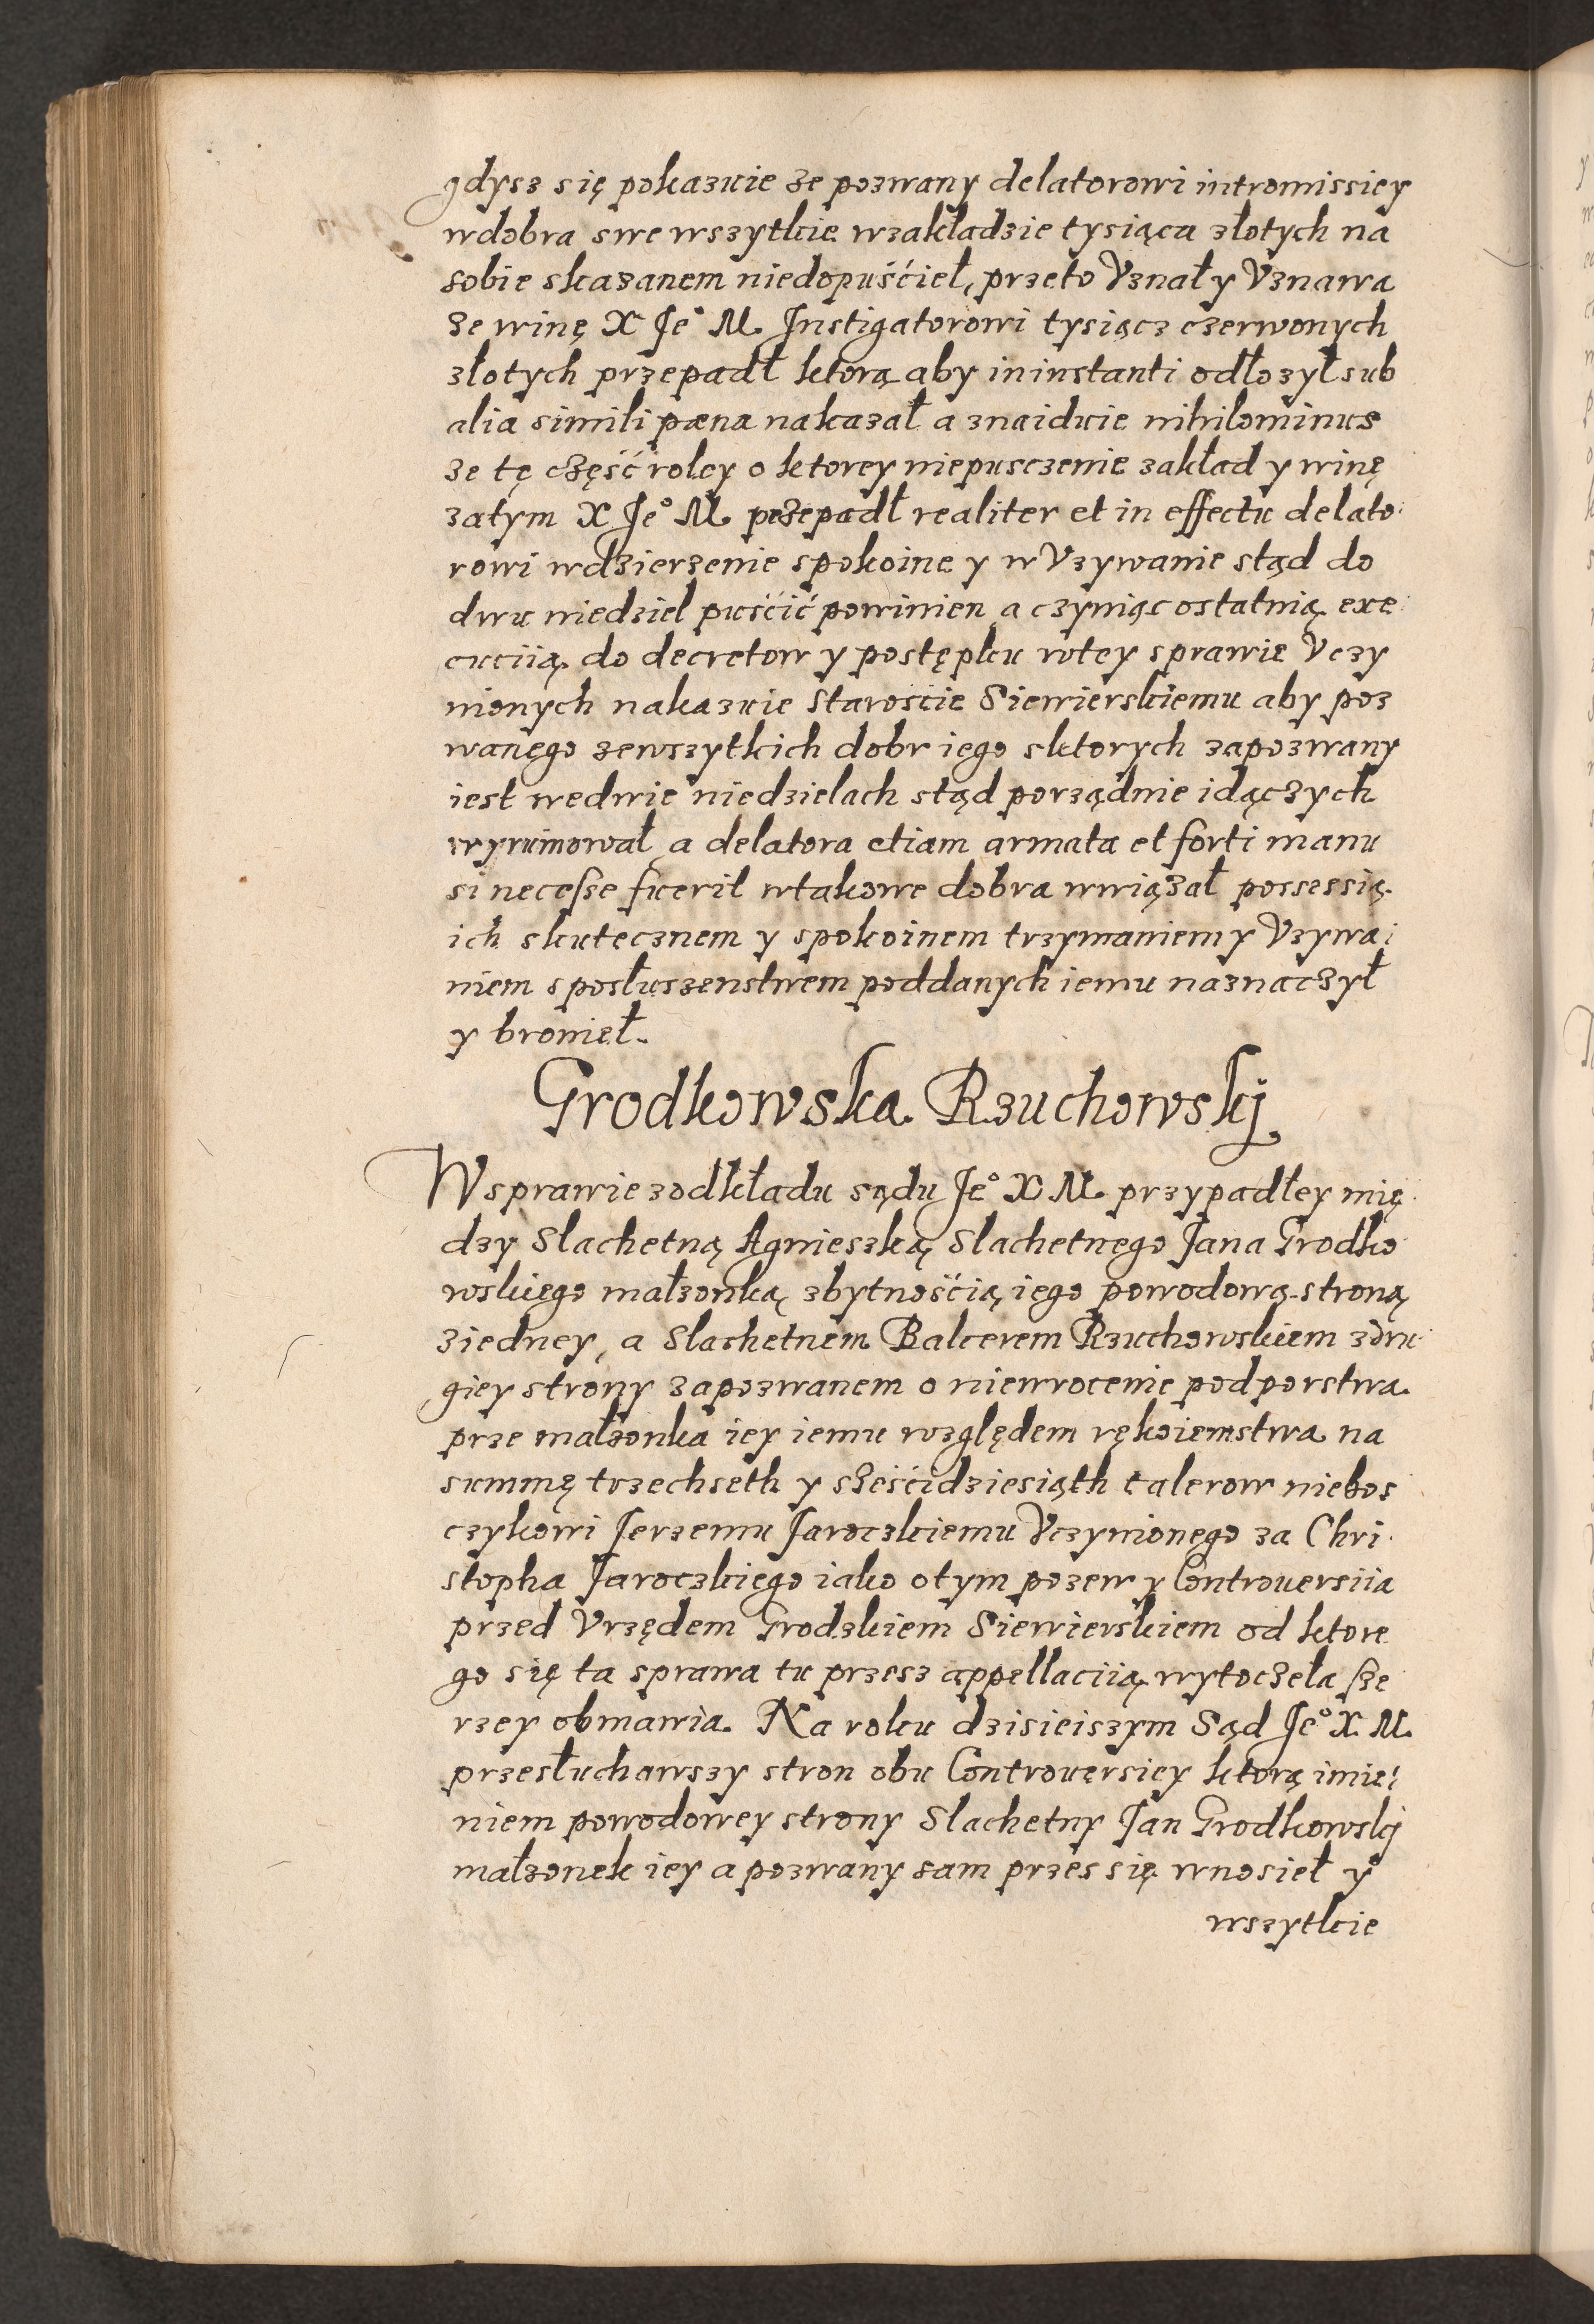 gdysz się pokazuie ze pozwany delatorowi intromissiey
wdobra swe wszytkie wzakładzie tysiąca złotych na
sobie skazanem niedopuśćieł, przeto Vznał y Vznawa
ze winę X Je° M. Instigatorowi tysiącz czerwonych
złotych przepadł ktorą aby ininstanti odłozył sub
alia simili pæna nakazał a znaiduie nihilominus
ze tę część roley o ktorey niepusczenie zakład y winę
zatym X Je° M. przepadł realiter et in effectu delato
rowi wdzierzenie spokoine y w Vzywanie stąd do
dwu niedziel puśćić powinien, a czyniąc ostatnią exe
cuciią do decretow y postępku wtey sprawie Vczy
nionych nakazuie Starosćie Siewierskiemu aby poz
wanego zewszytkich dobr iego sktorych zapozwany
iest wedwie niedzielach stąd porządnie idączych
wyrumował, a delatora etiam armata et forti manu
si necesse fuerit wtakowe dobra wwiązał possessią
ich skutecznem y spokoinem trzymaniem y Vzywa
niem sposłuszenstwem poddanych iemu naznaczył
y bronieł.
Grodkowska Rzuchowskj
W sprawie zodkładu sądu Je° X M. przypadłey mię
dzy Slachetną Agnieszką Slachetnego Jana Grodko
wskiego małzonką zbytnośćią iego powodową stroną
ziedney, a Slachetnem Balcerem Rzuchowskiem zdru
giey strony zapozwanem o niewrocenie podporstwa
prze małzonka iey iemu względem rękoiemstwa na
summę trzechseth y sześćidziesiąth talerow niebos
czykowi Jerzemu Jaroczkiemu Vczynionego za Chri
stopha Jaroczkiego iako otym pozew y Controuersiia
przed Vrzędem Grodzkiem Siewierskiem od ktore
go się ta sprawa tu przesz appellaciią wytoczeła sze
rzey obmawia. Na roku dzisieiszym Sąd Je° X. M.
przesłuchawszy stron obu Controuersiey ktorą imie
niem powodowey strony Slachetny Jan Grodkowskj
małzonek iey a pozwany sam przes się wnosieł y
wszytkie